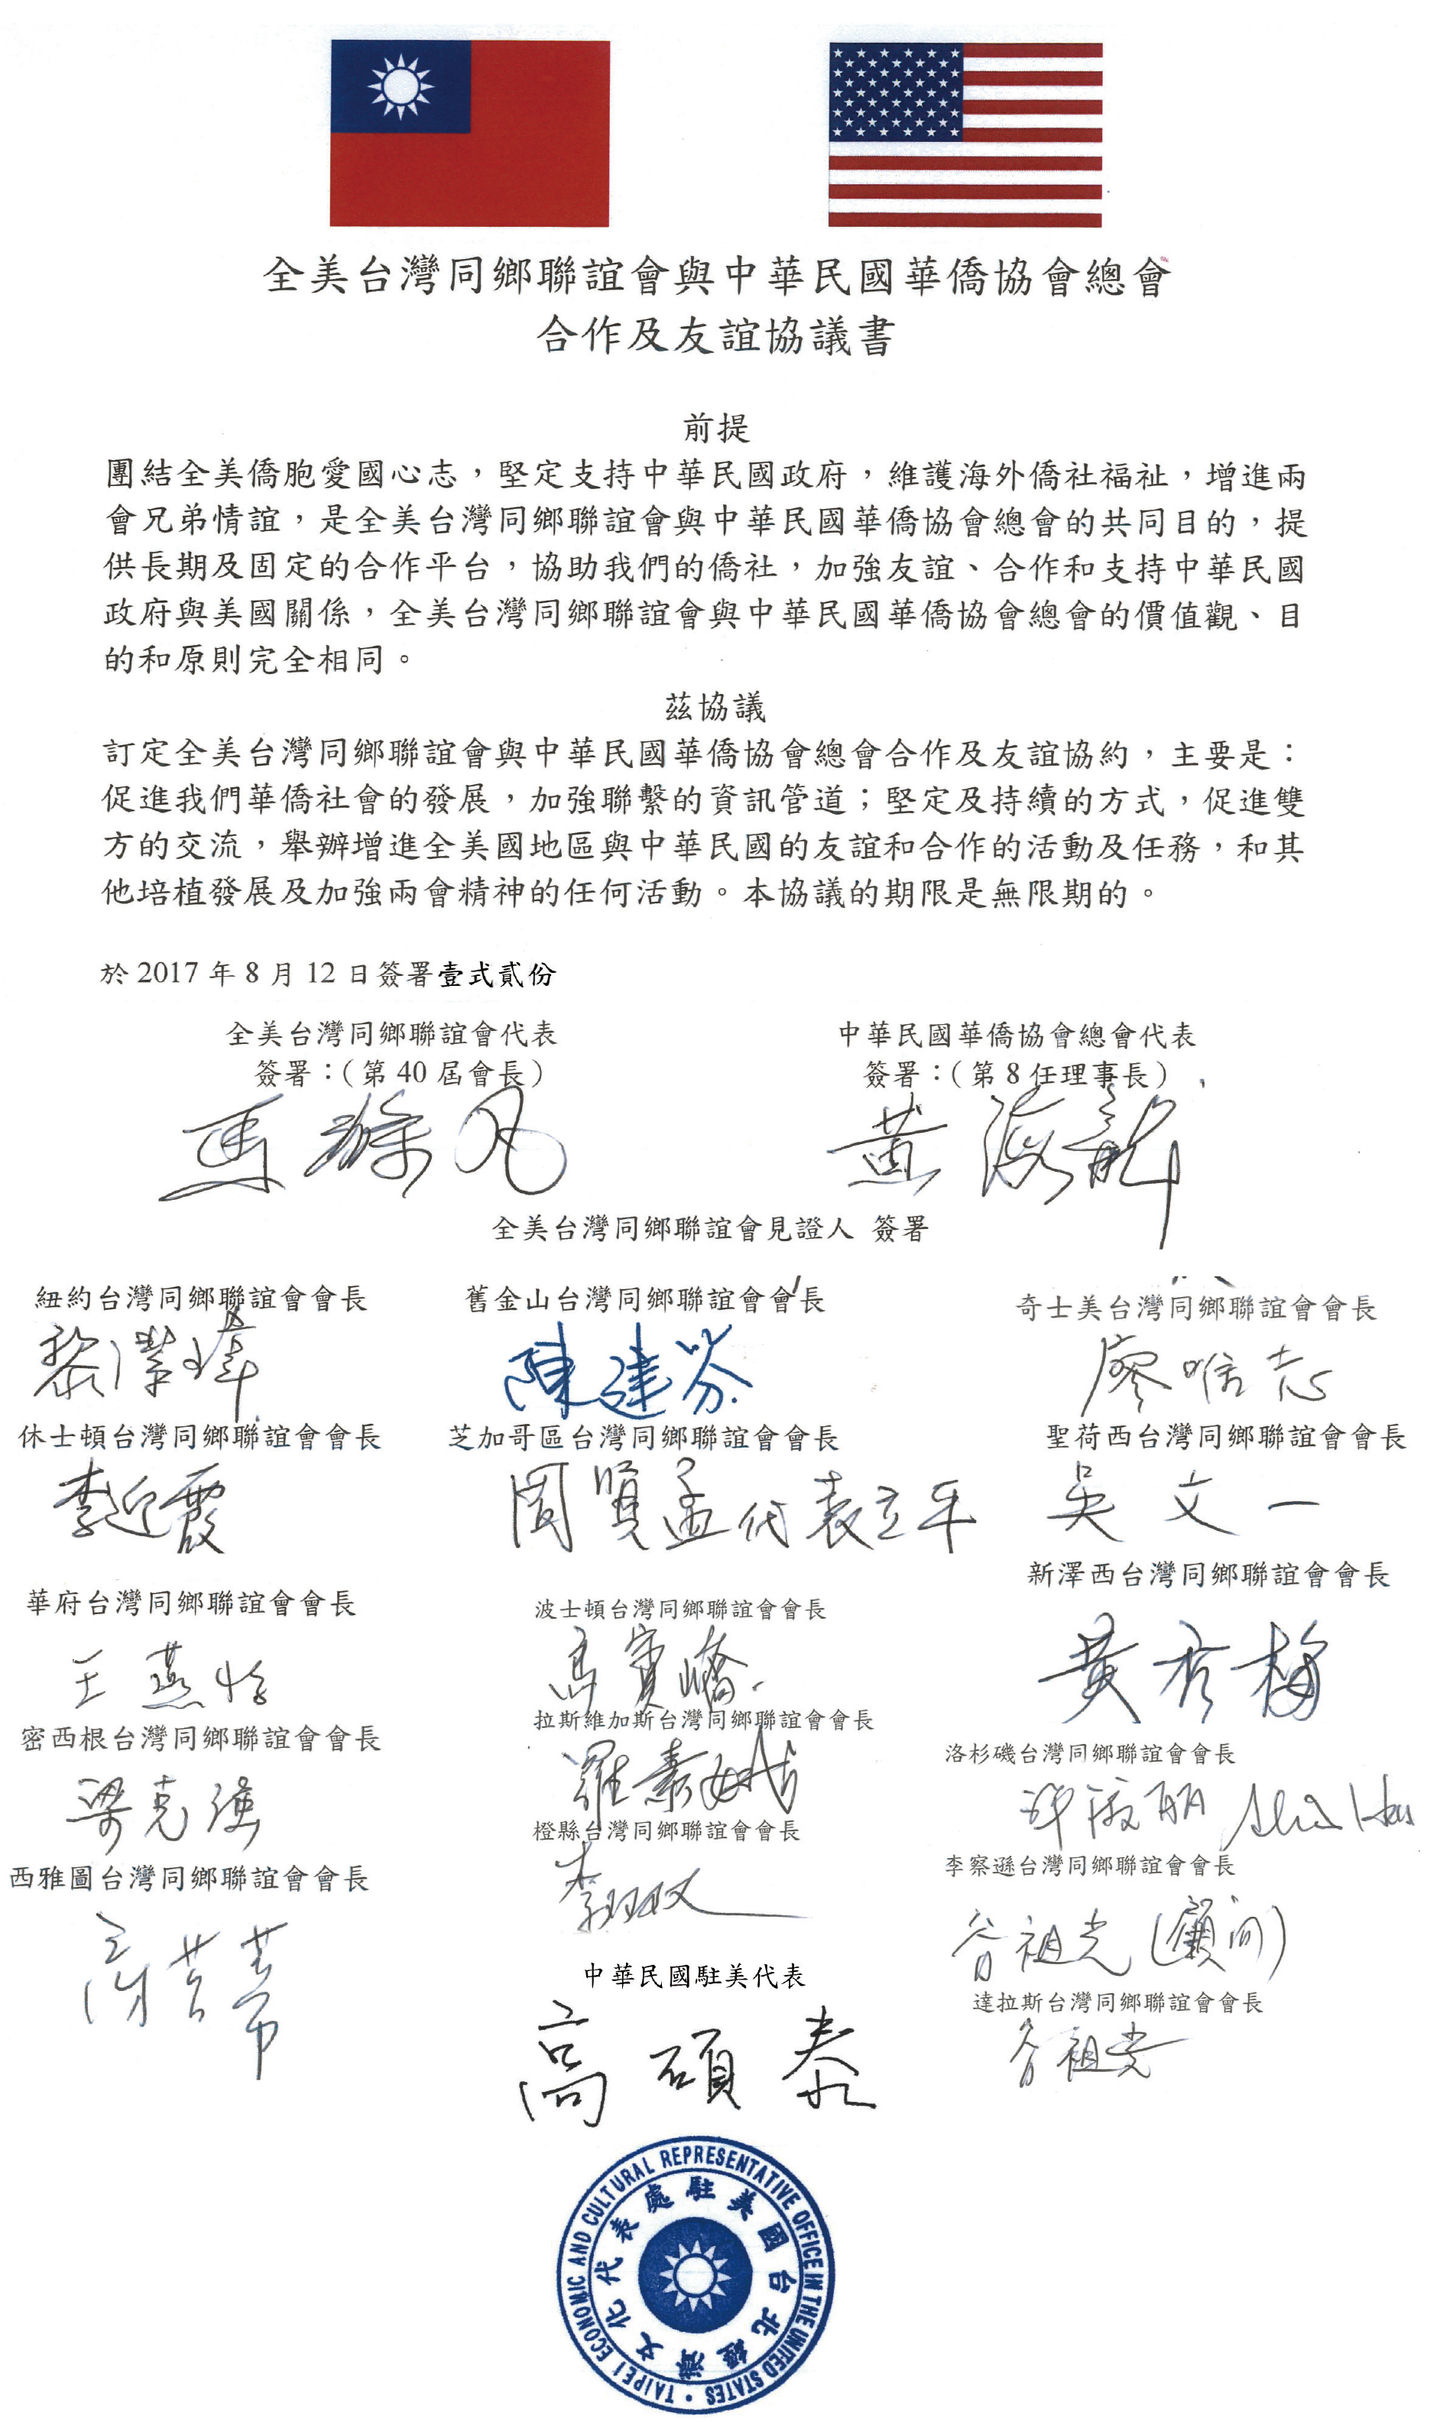 全美台灣同鄉聯誼會與中華民國華僑協會總會
合作及友誼協議書
前提
團結全美僑胞愛國心志，堅定支持中華民國政府，維護海外僑社福祉，增進兩
會兄弟情誼，是全美台灣同鄉聯誼會與中華民國華僑協會總會的共同目的，提
供長期及固定的合作平台，協助我們的僑社，加強友誼、合作和支持中華民國
政府與美國關係，全美台灣同鄉聯誼會與中華民國華僑協會總會的價值觀、目
的和原則完全相同。
茲協議
訂定全美台灣同鄉聯誼會與中華民國華僑協會總會合作及友誼協約，主要是：
促進我們華僑社會的發展，加強聯繫的資訊管道；堅定及持續的方式，促進雙
方的交流，舉辦增進全美國地區與中華民國的友誼和合作的活動及任務，和其
他培植發展及加強兩會精神的任何活動。本協議的期限是無限期的。
於 2017 年 8 月 12 日簽署壹式貳份
全美台灣同鄉聯誼會代表
簽署：（第 40 屆會長）
馬滌凡
中華民國華僑協會總會代表
簽署：（第 8 任理事長）
黃海龍
全美台灣同鄉聯誼會見證人 簽署
紐約台灣同鄉聯誼會會長
黎潔瑋
舊金山台灣同鄉聯誼會會長
陳建芬
奇士美台灣同鄉聯誼會會長
廖唯志
休士頓台灣同鄉聯誼會會長
李迎霞
芝加哥區台灣同鄉聯誼會會長
周賢孟代表立平
聖荷西台灣同鄉聯誼會會長
吳文一
華府台灣同鄉聯誼會會長
王燕怡
波士頓台灣同鄉聯誼會會長
馬寶嶠
新澤西台灣同鄉聯誼會會長
黃彥梅
密西根台灣同鄉聯誼會會長
梁克強
拉斯維加斯台灣同鄉聯誼會會長
羅素娥
洛杉磯台灣同鄉聯誼會會長
許淑
西雅圖台灣同鄉聯誼會會長
橙縣台灣同鄉聯誼會會長
李察遜台灣同鄉聯誼會會長
谷祖光（顧問）
達拉斯台灣同鄉聯誼會會長
谷祖光
中華民國駐美代表
高碩泰
TAIPEI ECONOMIC AND CULTURAL REPRESENTATIVE OFFICE IN THE UNITED STATES
駐美國台北經濟文化代表處